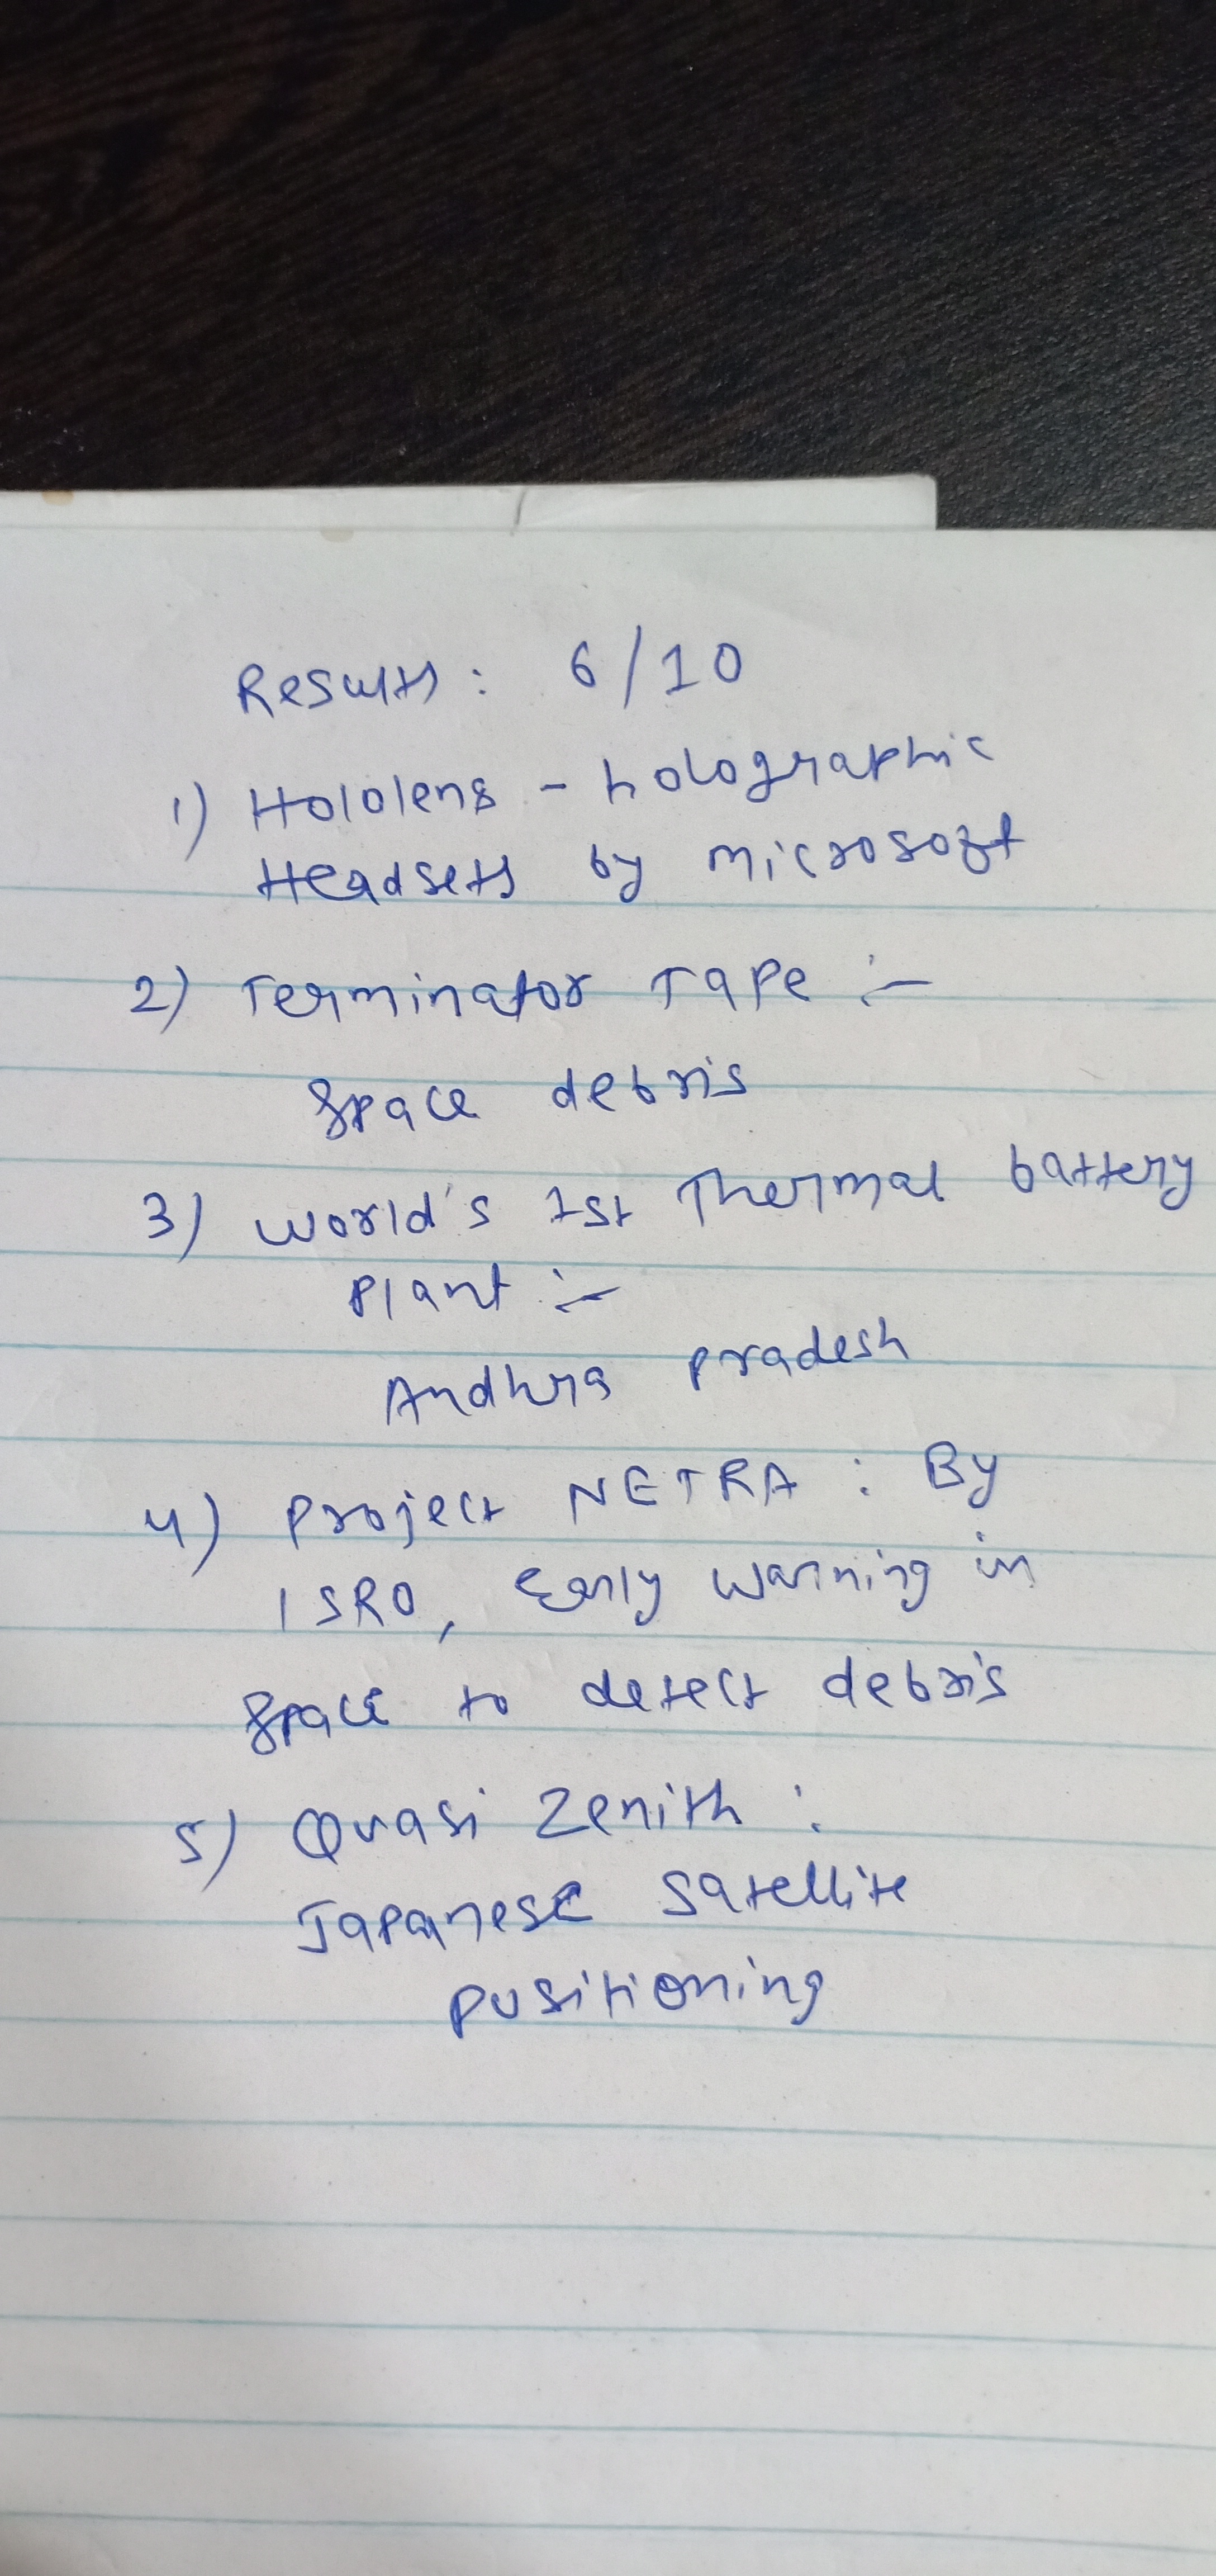 Results: 6/10
1) Hololens - holographic
Headsets by microsoft
2) Terminator Tape :-
Space debris
3) World's 1st Thermal battery
Plant :-
Andhra Pradesh
4) Project NETRA : By
ISRO, Early warning in
Space to detect debris
5) Quasi Zenith :
Japanese Satellite
Positioning